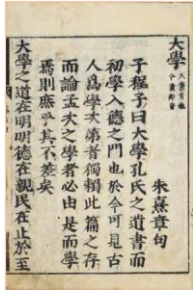 大學
朱熹章句
子程子曰大學孔氏之遺書而
初學入德之門也於今可見古
人爲學次第者獨賴此篇之存
而論孟次之學者必由是而學
焉則庶乎其不差矣
大學之道在明明德在親民在止於至